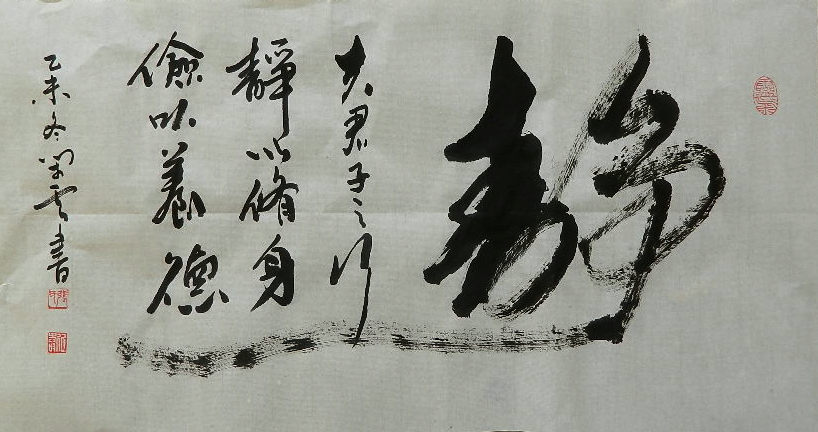 静
夫君子之行
靜以修身
儉以養德
乙未冬闲云書